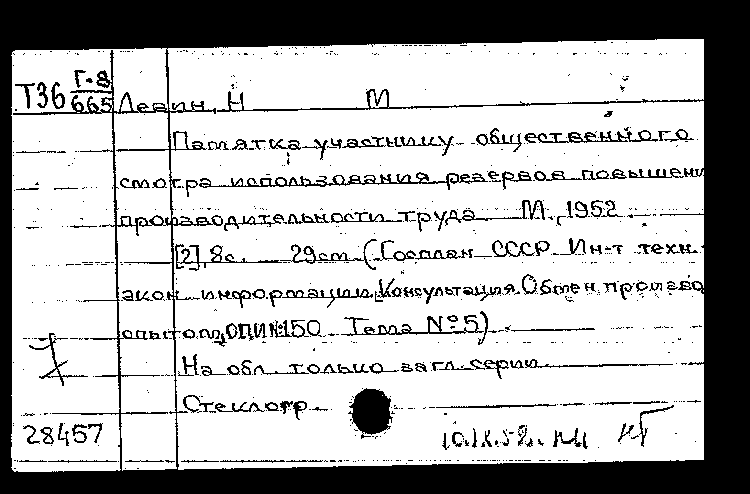 Т36 Г-8
665 Левин, Н М
Памятка участнику общественного
смотра использования резервов повышени
производительности труда. М., 1952.
[2], 8с. 29см (Госплан СССР. Ин-т техн.-
экон. информации. Консультация. Обмен произво
опытом, ОПИ №150. Тема №5).
На обл. только загл. серии.
Стеклогр.
28457 10.IX.52.